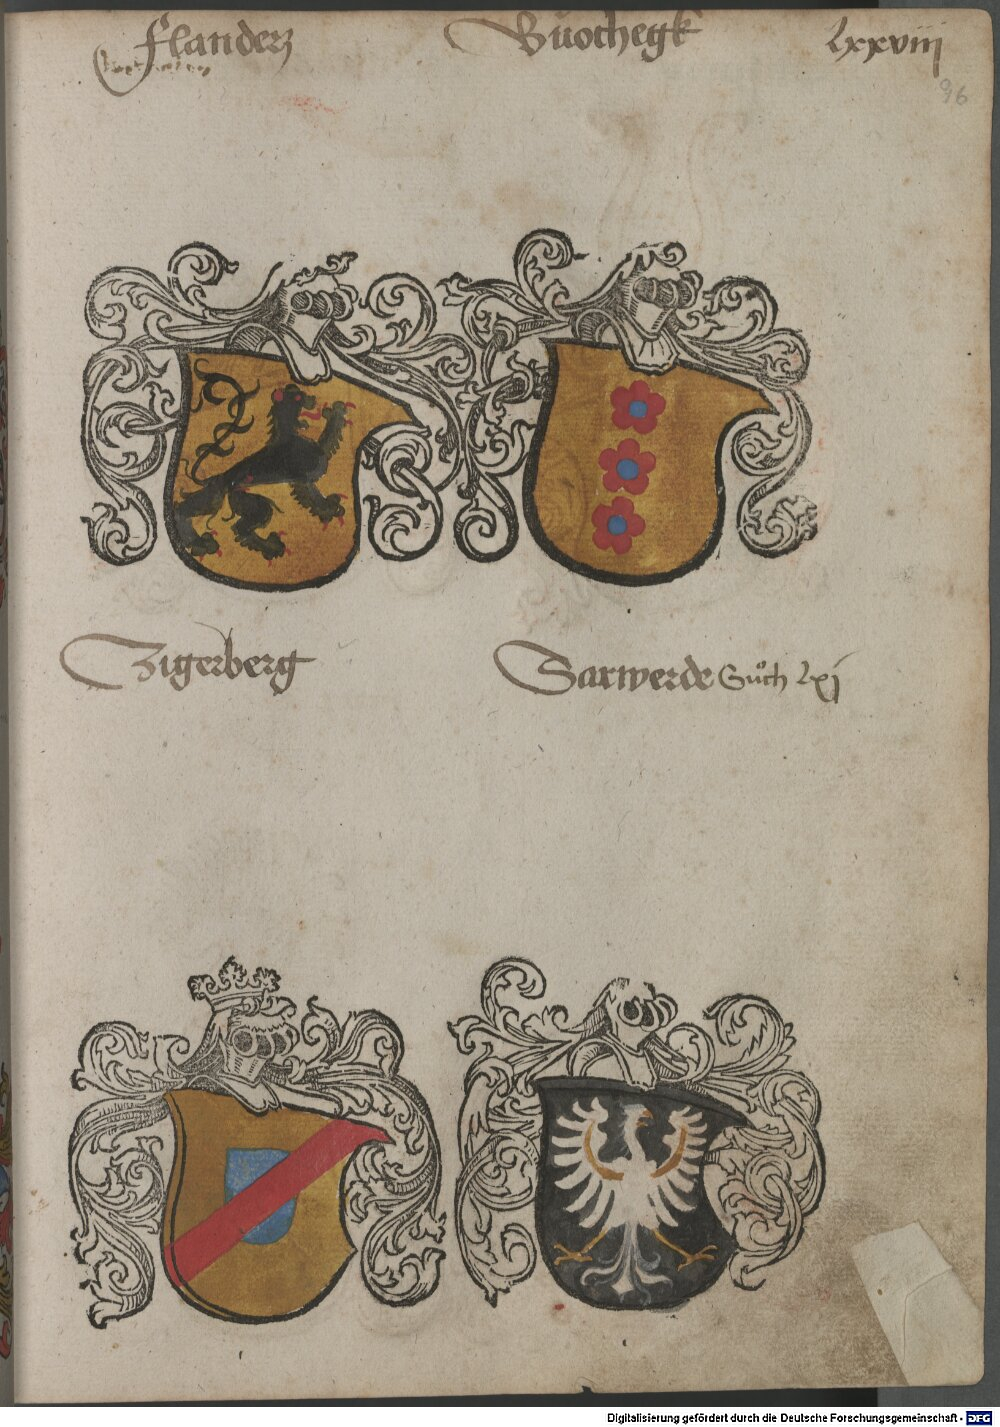 Flanderz Buochegk lxxviii
96
Zigerberg Saxwerde Sůch lxj
Digitalisierung gefördert durch die Deutsche Forschungsgemeinschaft - DFG